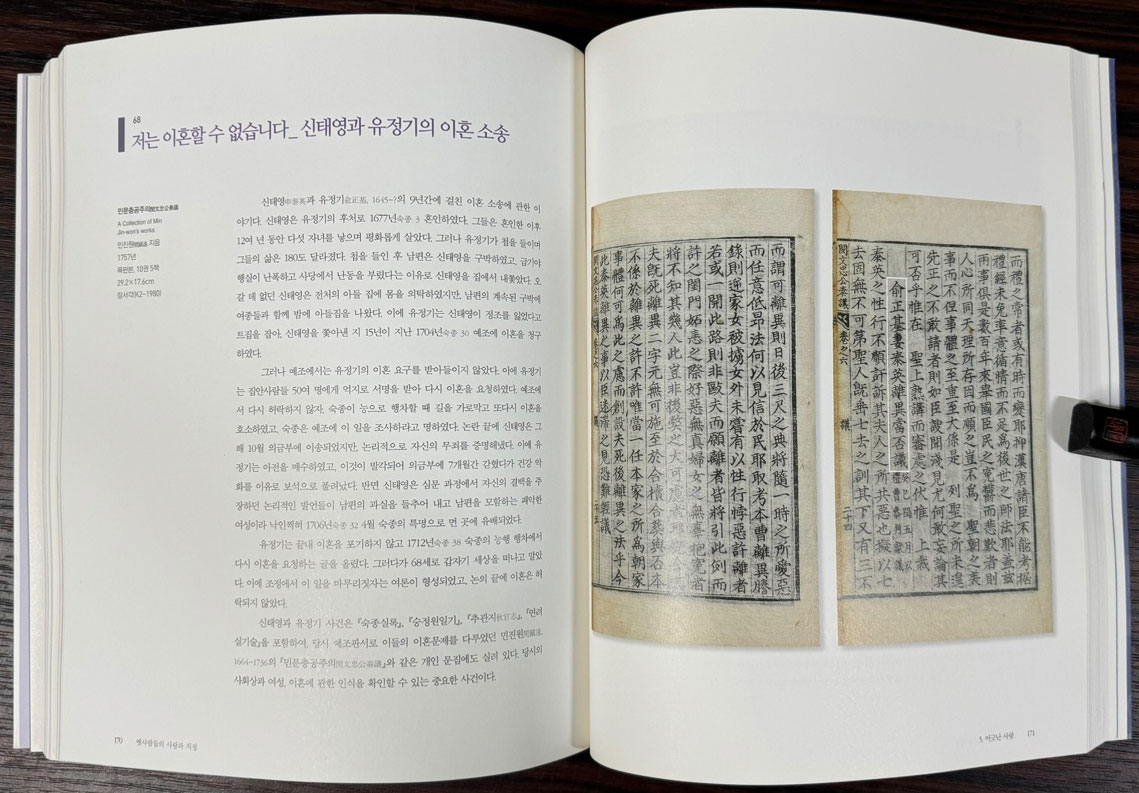 68
저는 이혼할 수 없습니다_ 신태영과 유정기의 이혼 소송
민문충공주의閔文忠公奏議
A Collection of Min
Jin-won's works
민진원閔鎭遠 지음
1757년
목판본, 10권 5책
29.2×17.6cm
장서각(K2-1980)
신태영申泰英과 유정기兪正基, 1645~?의 9년간에 걸친 이혼 소송에 관한 이
야기다. 신태영은 유정기의 후처로 1677년숙종 3 혼인하였다. 그들은 혼인한 이후
12여 년 동안 다섯 자녀를 낳으며 평화롭게 살았다. 그러나 유정기가 첩을 들이며
그들의 삶은 180도 달라졌다. 첩을 들인 후 남편은 신태영을 구박하였고, 급기야
행실이 난폭하고 사당에서 난동을 부렸다는 이유로 신태영을 집에서 내쫓았다. 오
갈 데 없던 신태영은 전처의 아들 집에 몸을 의탁하였지만, 남편의 계속된 구박에
여종들과 함께 밤에 아들집을 나왔다. 이에 유정기는 신태영이 정조를 잃었다고
트집을 잡아, 신태영을 쫓아낸 지 15년이 지난 1704년숙종 30 예조에 이혼을 청구
하였다.
그러나 예조에서는 유정기의 이혼 요구를 받아들이지 않았다. 이에 유정기
는 집안사람들 50여 명에게 억지로 서명을 받아 다시 이혼을 요청하였다. 예조에
서 다시 허락하지 않자, 숙종이 능으로 행차할 때 길을 가로막고 또다시 이혼을
호소하였고, 숙종은 예조에 이 일을 조사하라고 명하였다. 논란 끝에 신태영은 그
해 10월 의금부에 이송되었지만, 논리적으로 자신의 무죄를 증명해냈다. 이에 유
정기는 아전을 매수하였고, 이것이 발각되어 의금부에 7개월간 갇혔다가 건강 악
화를 이유로 보석으로 풀려났다. 반면 신태영은 심문 과정에서 자신의 결백을 주
장하던 논리적인 발언들이 남편의 과실을 들추어 내고 남편을 모함하는 패악한
여성이라 낙인찍혀 1706년숙종 32 4월 숙종의 특명으로 먼 곳에 유배되었다.
유정기는 끝내 이혼을 포기하지 않고 1712년숙종 38 숙종의 능행 행차에서
다시 이혼을 요청하는 글을 올렸다. 그러다가 68세로 갑자기 세상을 떠나고 말았
다. 이에 조정에서 이 일을 마무리짓자는 여론이 형성되었고, 논의 끝에 이혼은 허
락되지 않았다.
신태영과 유정기 사건은 『숙종실록』, 『승정원일기』, 『추관지秋官志』, 『연려
실기술』을 포함하여, 당시 예조판서로 이들의 이혼문제를 다루었던 민진원閔鎭遠,
1664~1736의 『민문충공주의閔文忠公奏議』와 같은 개인 문집에도 실려 있다. 당시의
사회상과 여성, 이혼에 관한 인식을 확인할 수 있는 중요한 사건이다.
170 옛사람들의 사랑과 치정
而禮之常者或有時而變耶抑漢唐諸臣不能考据
禮經未免率意循情而不足爲後世之師法耶盖玆
兩事俱是數百年來擧國臣民之寃鬱而悲歎者則
人心所同天理所存因而順之豈不爲 聖朝之美
事而不但事體之至重至大係是 列聖之所未遑
先正之不敢請者則如臣謏聞淺見尤何敢妄論其
可否乎惟在 聖上熟講而審處之伏惟 上裁
兪正基妻泰英離異當否議
泰英之性行不順訐訴其夫人之所共惡也擬以七
去固無不可第聖人旣垂士去之訓其下又有三不
閔文忠公奏議 卷之六 議 二十四
而謂可離異則日後三尺之典將隨一時之所愛惡
而任意低昂法何以見信於民耶取考本曹離異謄
錄則逆家女被擄女外未嘗有以性行悖惡許離者
若或一開此路則非歐夫而願離者皆將引此例而
訐之閨門妬恚之際好惡無眞婦女之無辜抱寃者
將不知其幾人此豈非後弊之大可慮者耶
夫旣死離異二字元無可施至於合櫝合葬與否本
不係於離異之許不許唯當一任本家之所爲朝家
事體何可爲此之慮而創設夫死後離異之法乎今
此泰英離異之事以臣迷滯之見恐難輕議
5. 어긋난 사랑 171